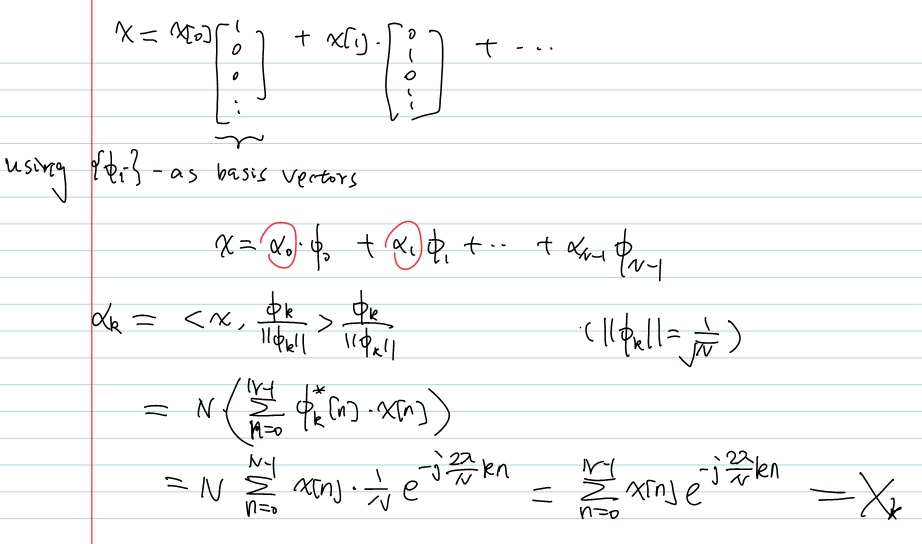 x = x[0] [1 0 0 ⋮] + x[1] · [0 1 0 ⋮] + ···
using {ϕᵢ} - as basis vectors
x = α₀ · ϕ₀ + α₁ ϕ₁ + ·· + α_{N-1} ϕ_{N-1}
α_k = <x, ϕ_k/||ϕ_k||> ϕ_k/||ϕ_k|| (||ϕ_k|| = 1/√N)
= N · (∑_{n=0}^{N-1} ϕ_k^*[n] · x[n])
= N ∑_{n=0}^{N-1} x[n] · 1/N e^{-j 2π/N kn} = ∑_{n=0}^{N-1} x[n] e^{-j 2π/N kn} = X_k